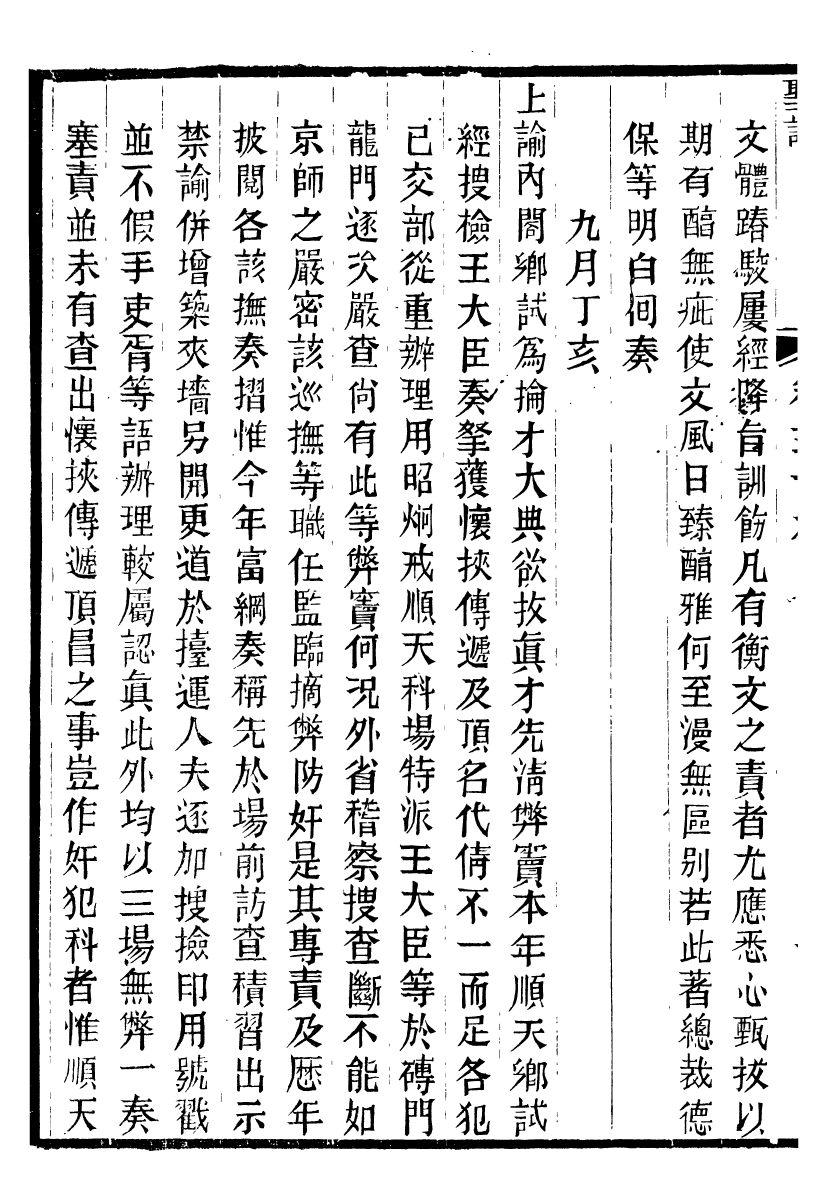 聖訓
文體踳駁屢經降旨訓飭凡有衡文之責者尤應悉心甄拔以
期有醕無疵使文風日臻醕雅何至漫無區別若此著總裁德
保等明白回奏
九月丁亥
上諭內閣鄉試爲掄才大典欲拔眞才先清弊竇本年順天鄉試
經搜檢王大臣奏拏獲懷挾傳遞及頂名代倩不一而足各犯
已交部從重辦理用昭炯戒順天科場特派王大臣等於磚門
龍門逐次嚴查尙有此等弊竇何況外省稽察搜查斷不能如
京師之嚴密該巡撫等職任監臨摘弊防奸是其專責及歴年
披閱各該撫奏摺惟今年富綱奏稱先於場前訪查積習出示
禁諭併增築夾墻另開更道於擡運人夫逐加搜撿印用號戳
並不假手吏胥等語辦理較屬認眞此外均以三場無弊一奏
塞責並未有查出懷挾傳遞頂冒之事豈作奸犯科者惟順天